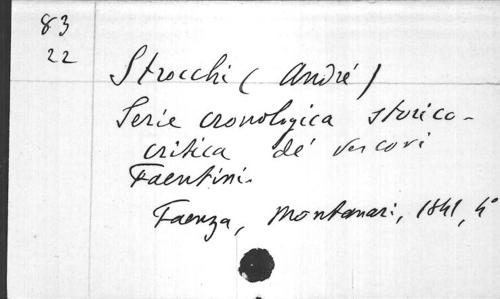 83
22
Strocchi (André)
Serie cronologica storico-
critica de' vescovi
Faentini.
Faenza, Montanari, 1841, 4°